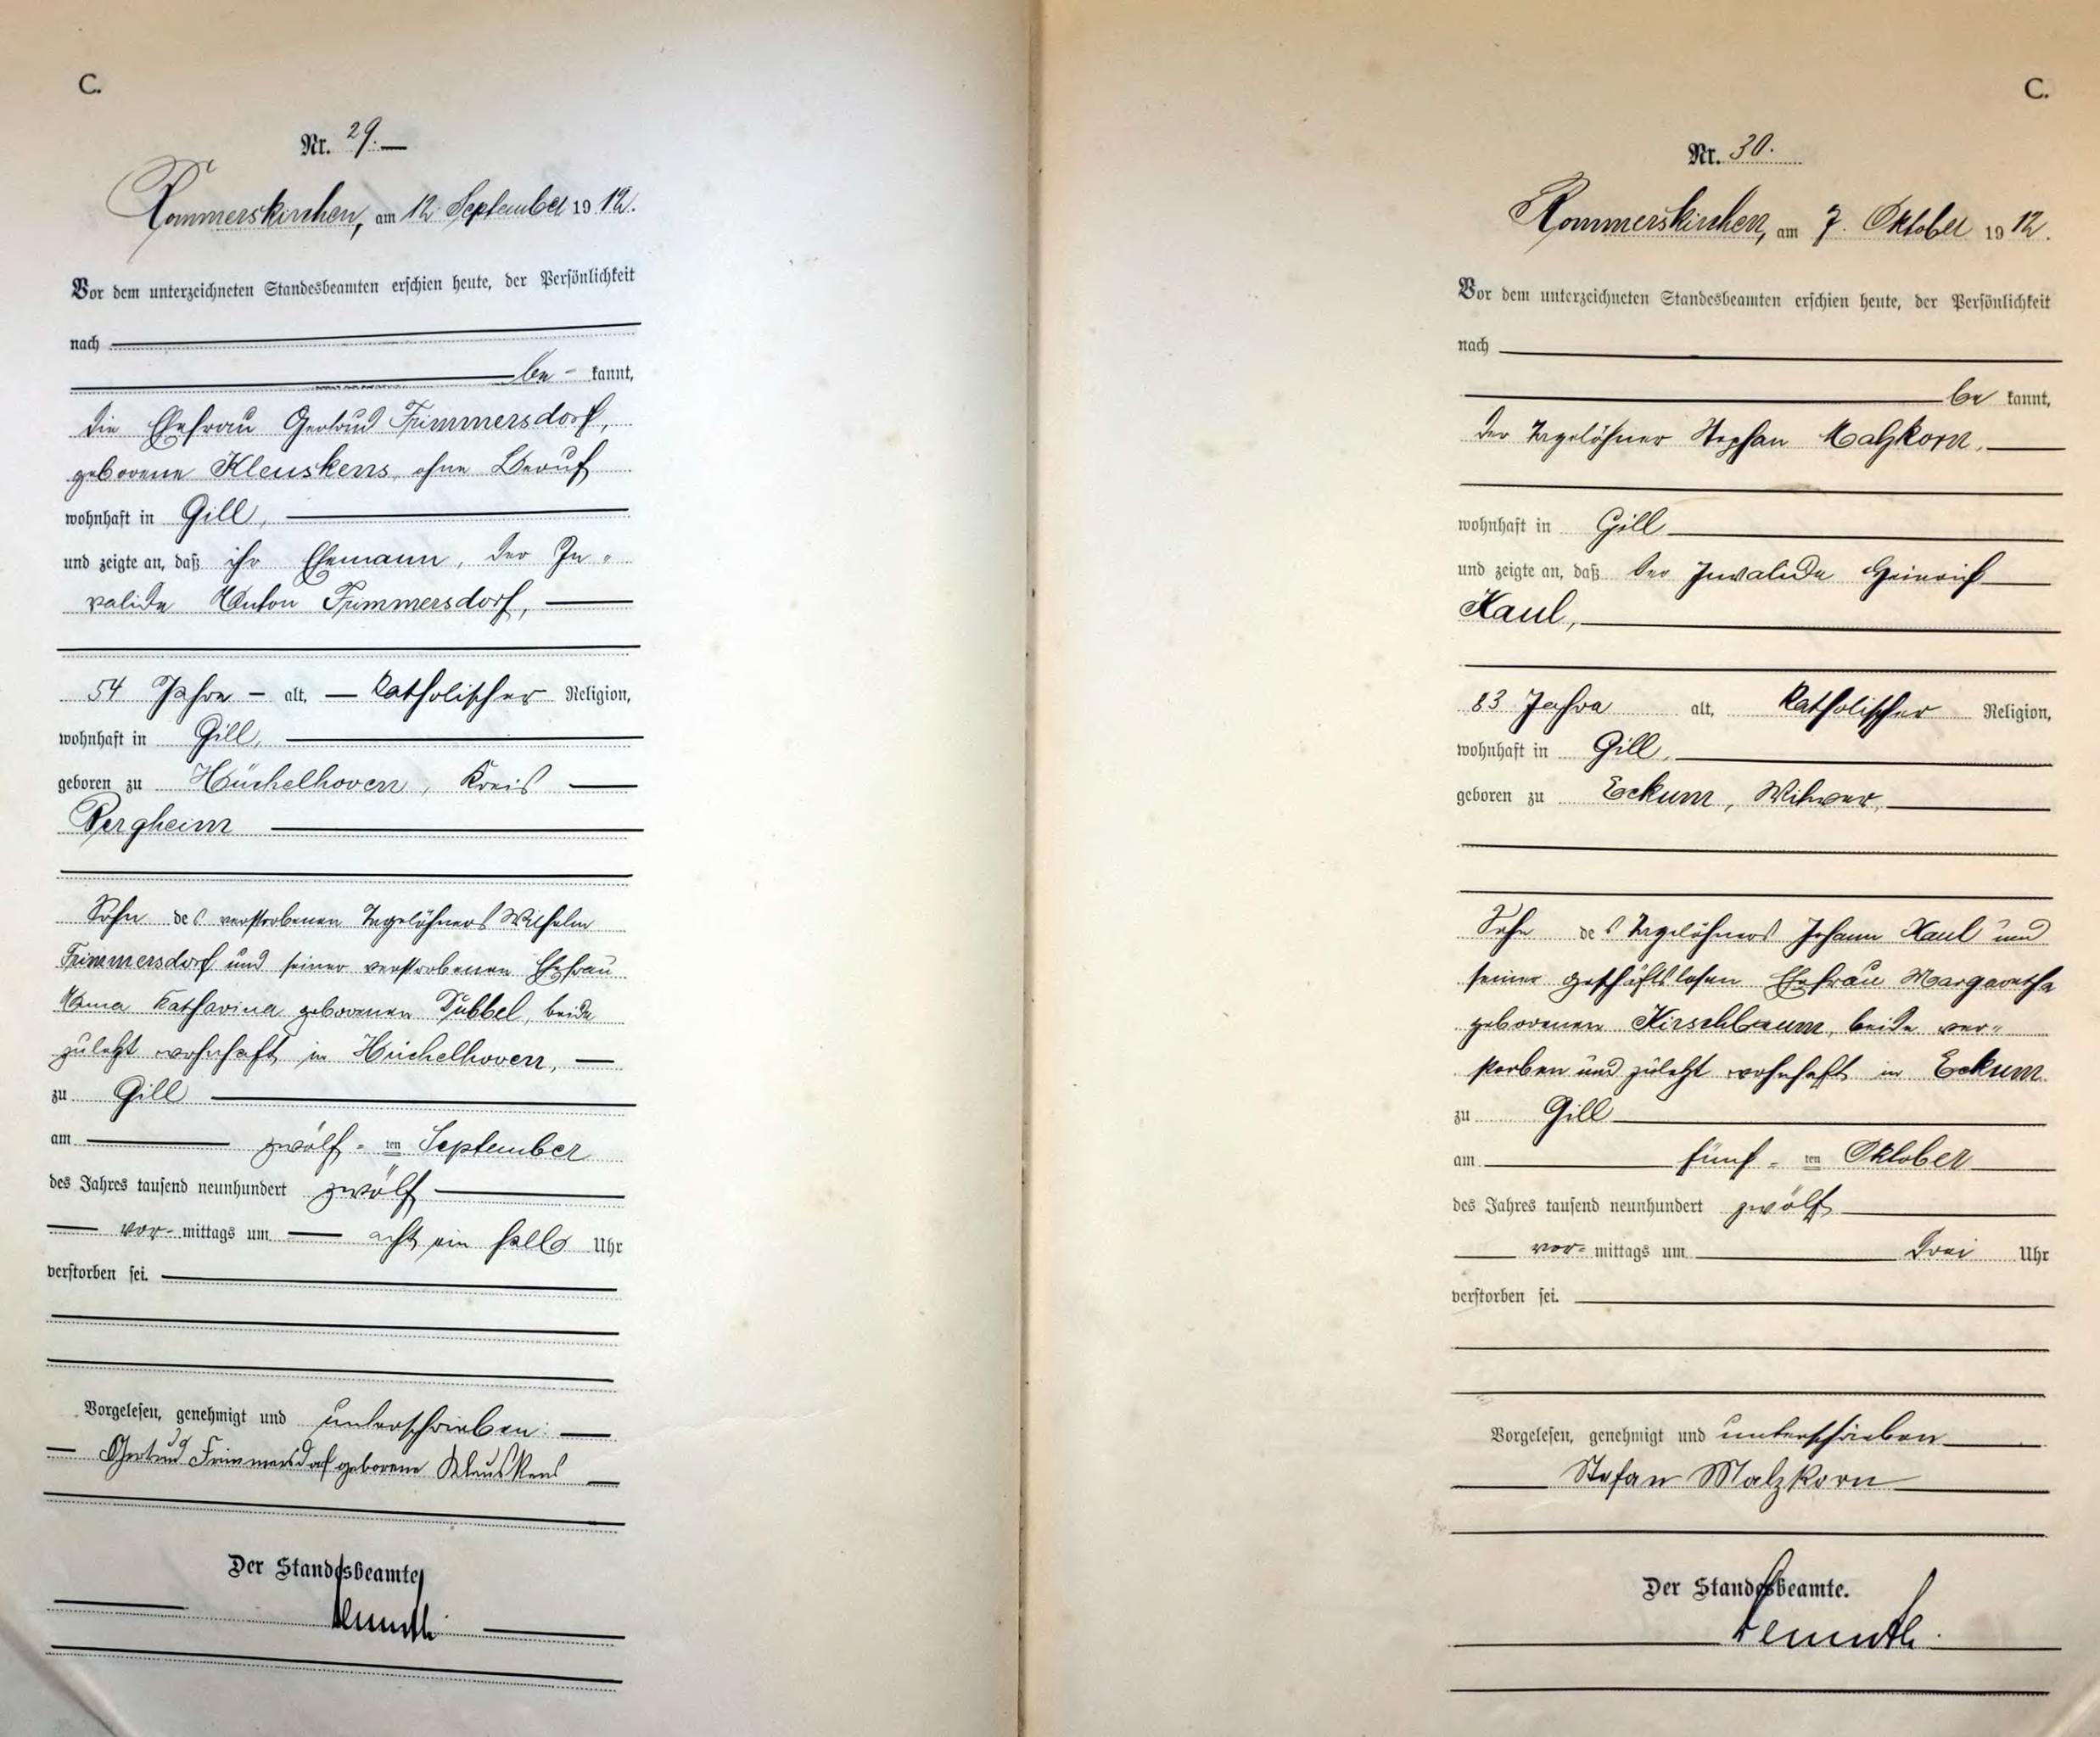 C.
Nr. 29.
Rommerskirchen, am 12. September 1912.
Vor dem unterzeichneten Standesbeamten erschien heute, der Persönlichkeit
nach
be- kannt,
die Ehefrau Gertrud Frimmersdorf,
geborene Kleuskens, ohne Beruf
wohnhaft in Gill,
und zeigte an, daß ihr Ehemann, der In-
valide Anton Frimmersdorf,
54 Jahre alt, katholischer Religion,
wohnhaft in Gill,
geboren zu Hüchelhoven, Kreis
Bergheim
Sohn des verstorbenen Tagelöhners Wilhelm
Frimmersdorf und seiner verstorbenen Ehefrau
Anna Katharina geborenen Dübbel, beide
zuletzt wohnhaft in Hüchelhoven,
zu Gill
am zwölf-ten September
des Jahres tausend neunhundert zwölf
vor-mittags um acht ein halb Uhr
verstorben sei.
Vorgelesen, genehmigt und unterschrieben:
Gertrud Frimmersdorf geborene Kleuskens
Der Standesbeamte
C.
Nr. 30.
Rommerskirchen, am 7. Oktober 1912.
Vor dem unterzeichneten Standesbeamten erschien heute, der Persönlichkeit
nach
be kannt,
der Tagelöhner Stephan Malzkorn,
wohnhaft in Gill
und zeigte an, daß der Invalide Heinrich
Kaul,
83 Jahre alt, katholischer Religion,
wohnhaft in Gill,
geboren zu Eckum, Witwer,
Sohn des Tagelöhners Johann Kaul und
seiner geschäftslosen Ehefrau Margaretha
geborenen Kirschbaum, beide ver-
storben und zuletzt wohnhaft in Eckum
zu Gill
am fünf-ten Oktober
des Jahres tausend neunhundert zwölf
vor-mittags um drei Uhr
verstorben sei.
Vorgelesen, genehmigt und unterschrieben
Stefan Malzkorn
Der Standesbeamte.